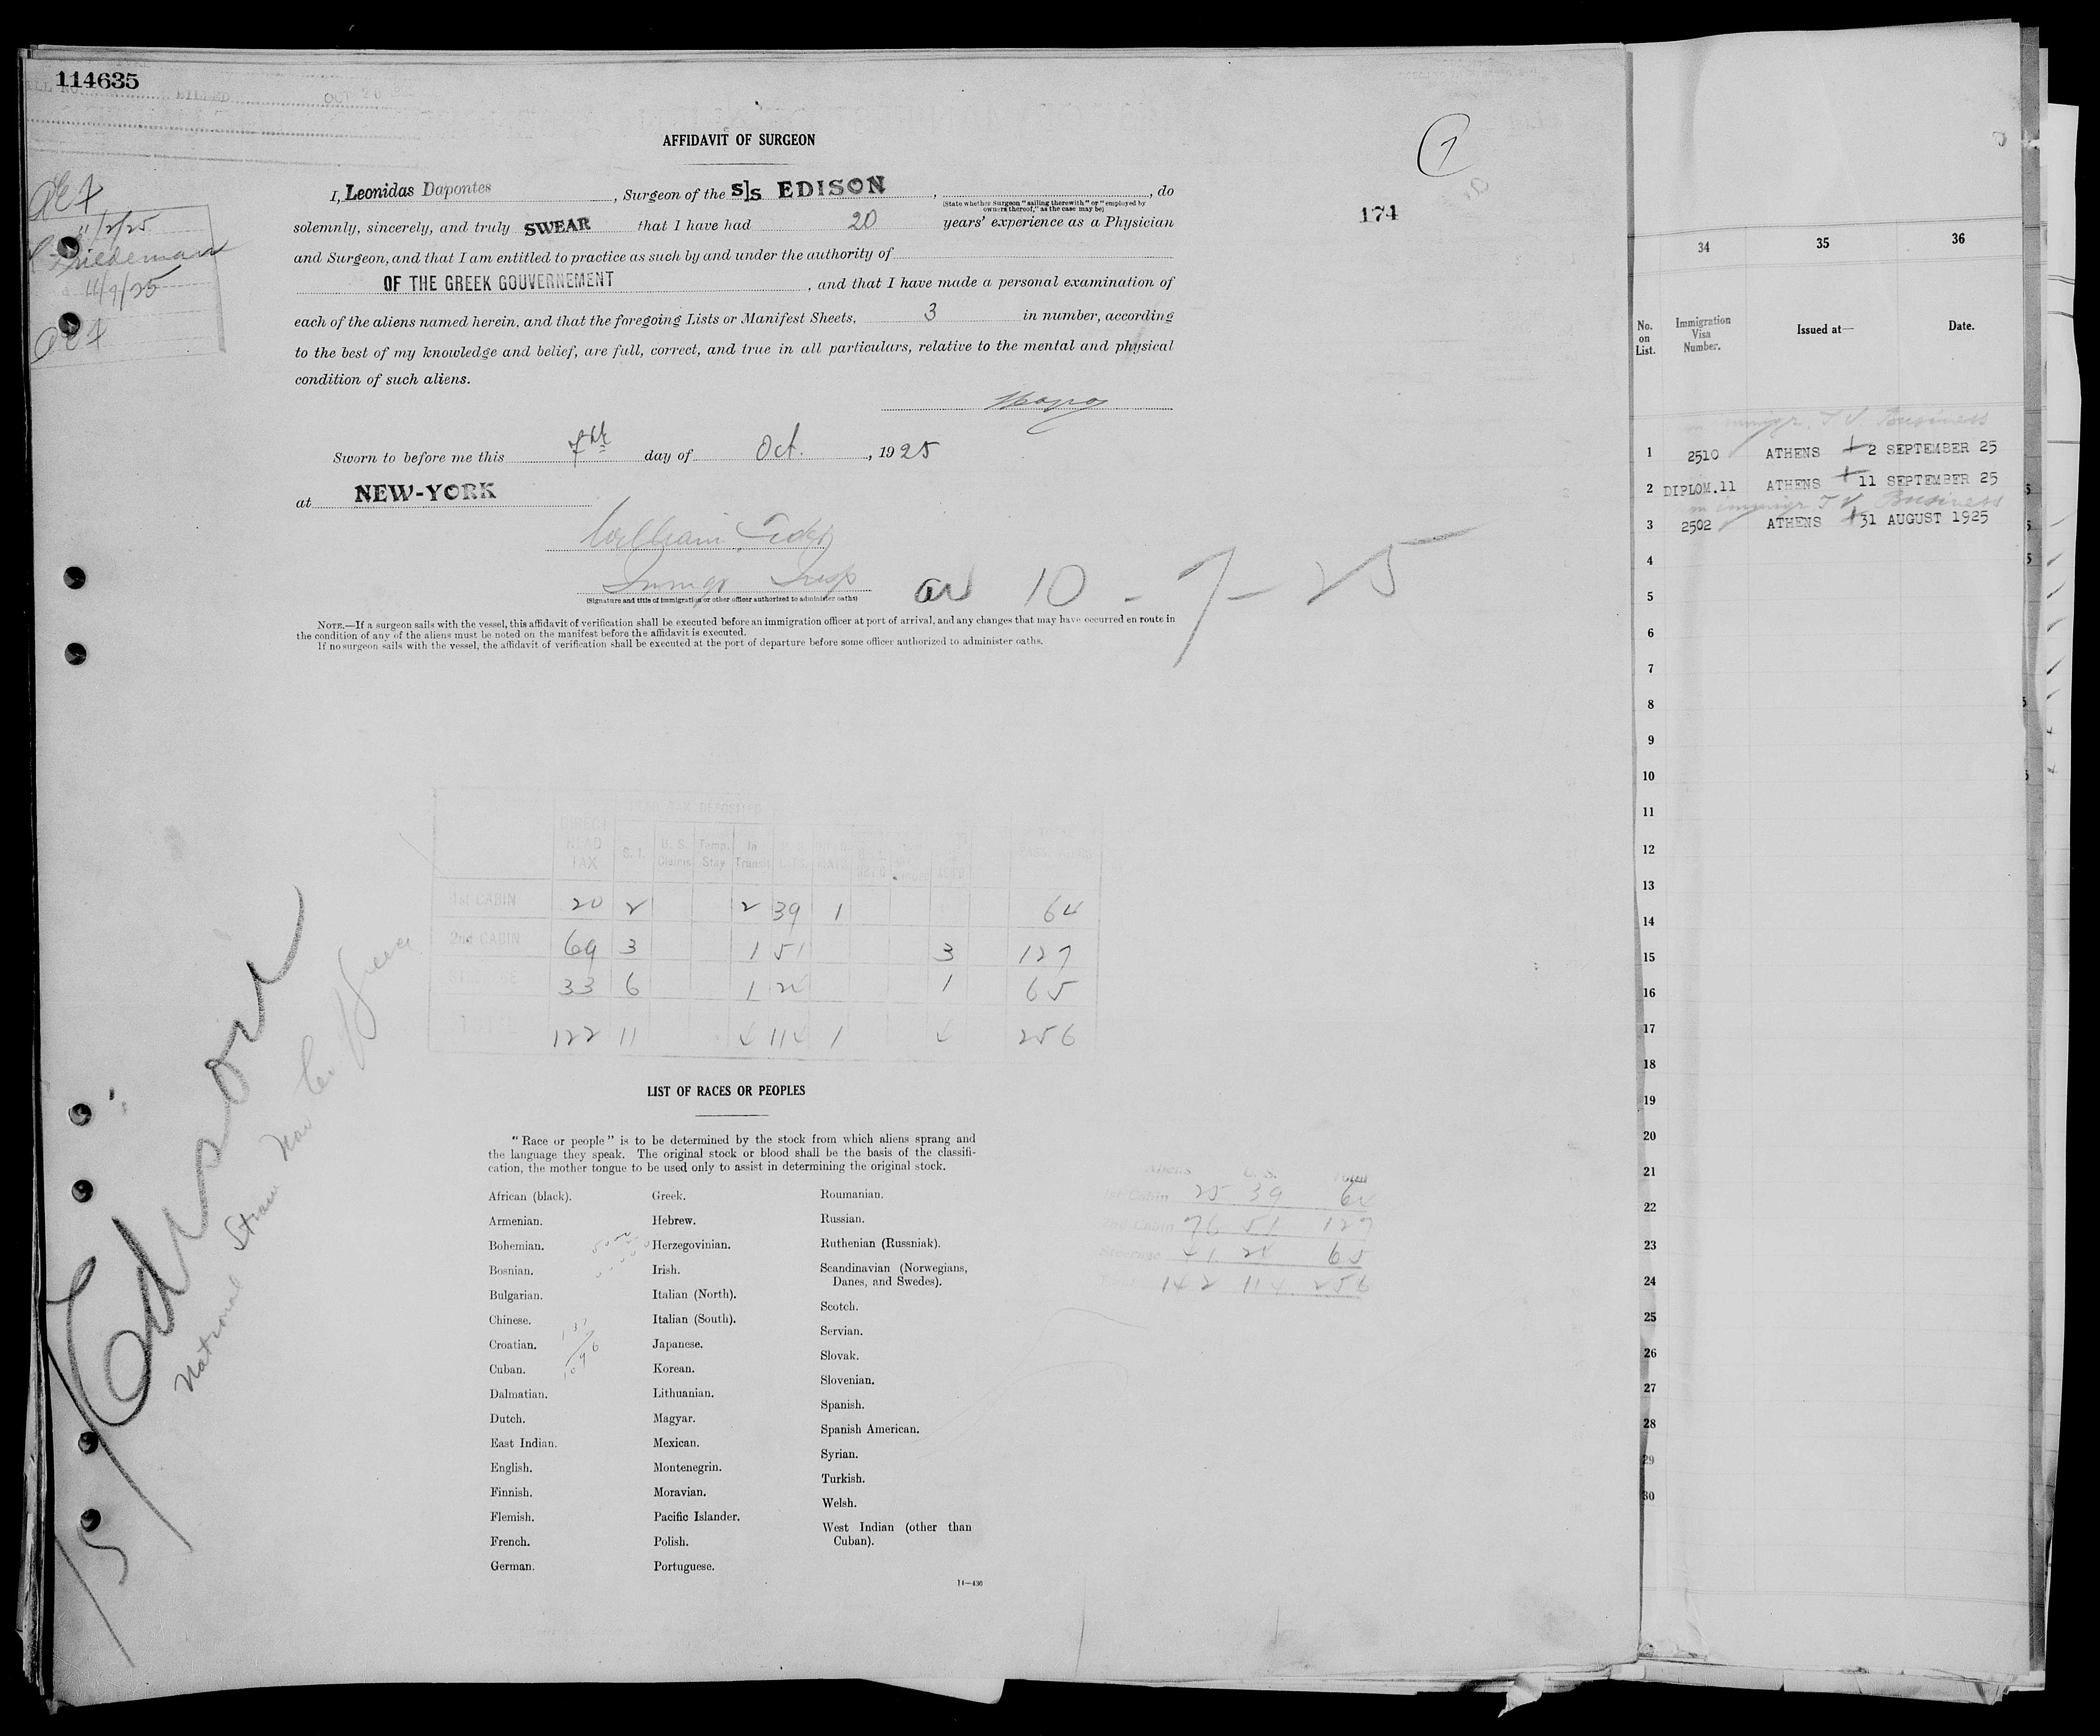 114635
BILLED OCT 20
AFFIDAVIT OF SURGEON
1
174
I, Leonidas Dapontes, Surgeon of the S/S EDISON, , do
(State whether Surgeon "sailing therewith" or "employed by owners thereof," as the case may be)
solemnly, sincerely, and truly SWEAR that I have had 20 years' experience as a Physician
and Surgeon, and that I am entitled to practice as such by and under the authority of
OF THE GREEK GOUVERNEMENT, and that I have made a personal examination of
each of the aliens named herein, and that the foregoing Lists or Manifest Sheets, 3 in number, according
to the best of my knowledge and belief, are full, correct, and true in all particulars, relative to the mental and physical
condition of such aliens.
11/2/25
Friedeman
11/9/25
Sworn to before me this 7th day of Oct., 1925
at NEW-YORK
William
Immgr Insp
(Signature and title of immigration or other officer authorized to administer oaths)
10-7-25
NOTE.—If a surgeon sails with the vessel, this affidavit of verification shall be executed before an immigration officer at port of arrival, and any changes that may have occurred en route in
the condition of any of the aliens must be noted on the manifest before the affidavit is executed.
If no surgeon sails with the vessel, the affidavit of verification shall be executed at the port of departure before some officer authorized to administer oaths.
HEAD TAX DEPOSITED
DIRECT HEAD TAX S. I. U. S. Claims Temp. Stay In Transit
1st CABIN 20 2 2 39 1 64
2nd CABIN 69 3 1 51 3 127
STEERAGE 33 6 1 24 1 65
TOTAL 122 11 4 114 1 4 256
Edison
National Steam Nav Co Greece
LIST OF RACES OR PEOPLES
"Race or people" is to be determined by the stock from which aliens sprang and
the language they speak. The original stock or blood shall be the basis of the classifi-
cation, the mother tongue to be used only to assist in determining the original stock.
African (black).
Armenian.
Bohemian.
Bosnian.
Bulgarian.
Chinese.
Croatian.
Cuban.
Dalmatian.
Dutch.
East Indian.
English.
Finnish.
Flemish.
French.
German.
Greek.
Hebrew.
Herzegovinian.
Irish.
Italian (North).
Italian (South).
Japanese.
Korean.
Lithuanian.
Magyar.
Mexican.
Montenegrin.
Moravian.
Pacific Islander.
Polish.
Portuguese.
Roumanian.
Russian.
Ruthenian (Russniak).
Scandinavian (Norwegians,
Danes, and Swedes).
Scotch.
Servian.
Slovak.
Slovenian.
Spanish.
Spanish American.
Syrian.
Turkish.
Welsh.
West Indian (other than
Cuban).
14—430
Aliens U. S. Total
1st Cabin 25 39 64
2nd Cabin 76 51 127
Steerage 41 24 65
Total 142 114 256
34 35 36
No. on List. Immigration Visa Number. Issued at— Date.
T V. Business
1 2510 ATHENS 2 SEPTEMBER 25
2 DIPLOM.11 ATHENS 11 SEPTEMBER 25
T V. Business
3 2502 ATHENS 31 AUGUST 1925
4
5
6
7
8
9
10
11
12
13
14
15
16
17
18
19
20
21
22
23
24
25
26
27
28
29
30